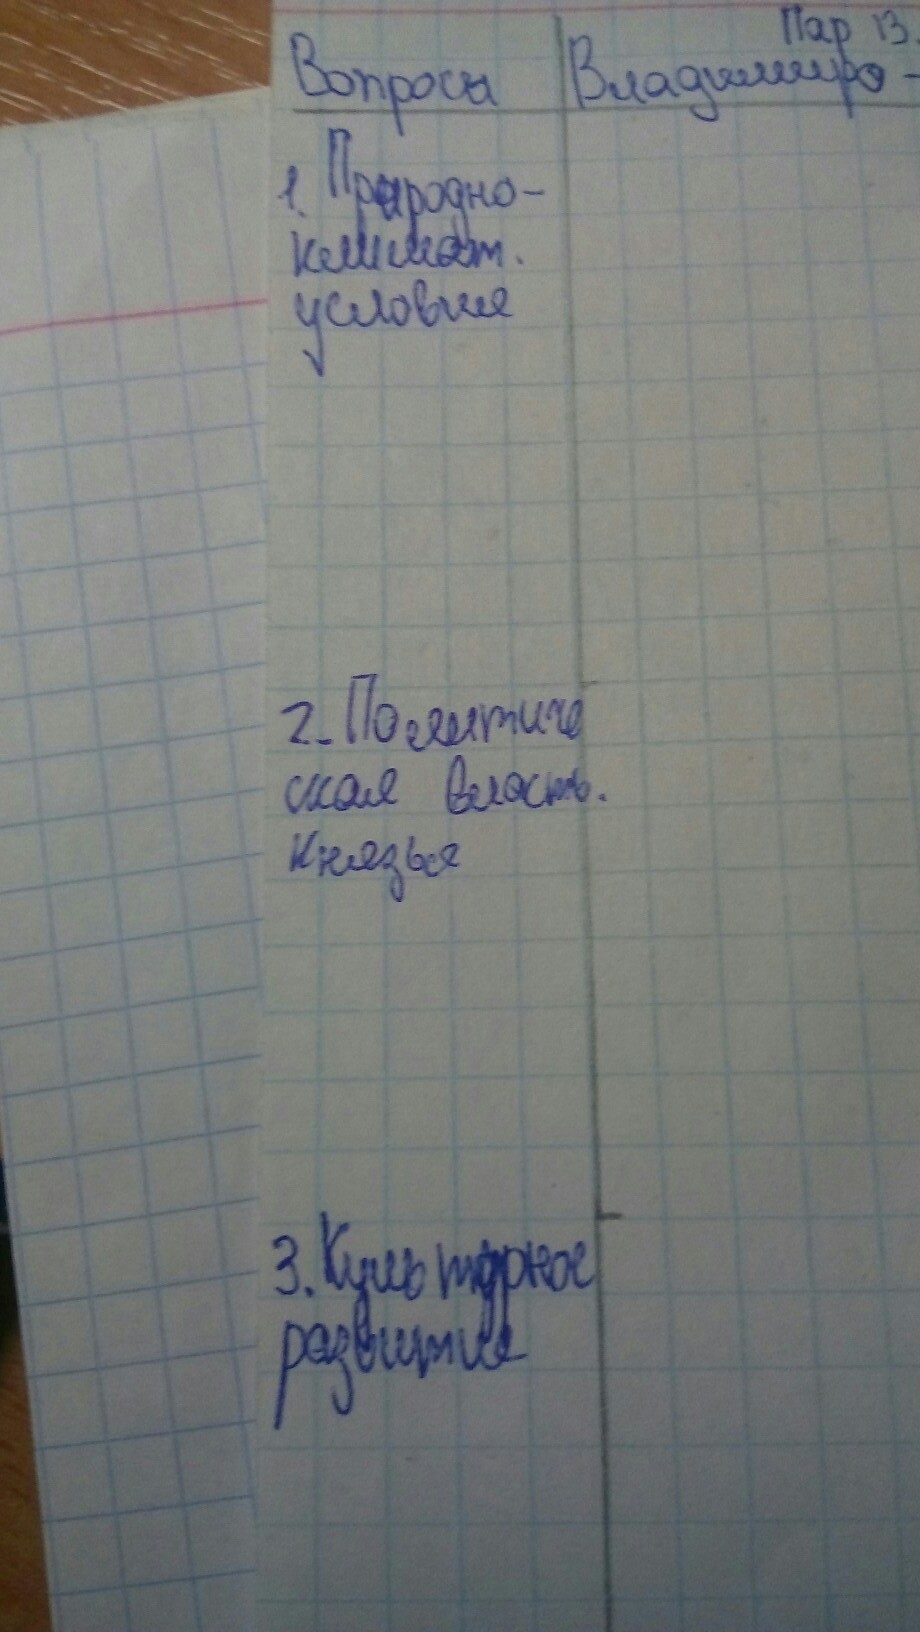 Пар 13.
Вопросы Владимиро-
1. Природно-
климат.
условия
2. Политиче
ская власть.
Князья
3. Культурное
развитие